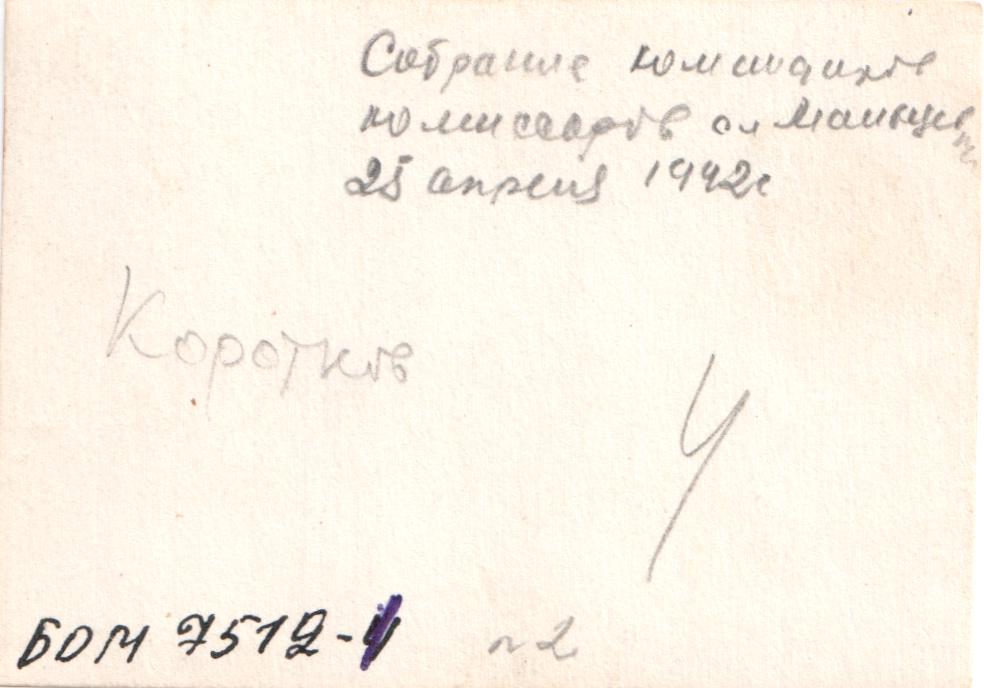 Собрание командиров
комиссаров
25 апреля 1942г
Коротков
4
БОМ 7512-4
п 2